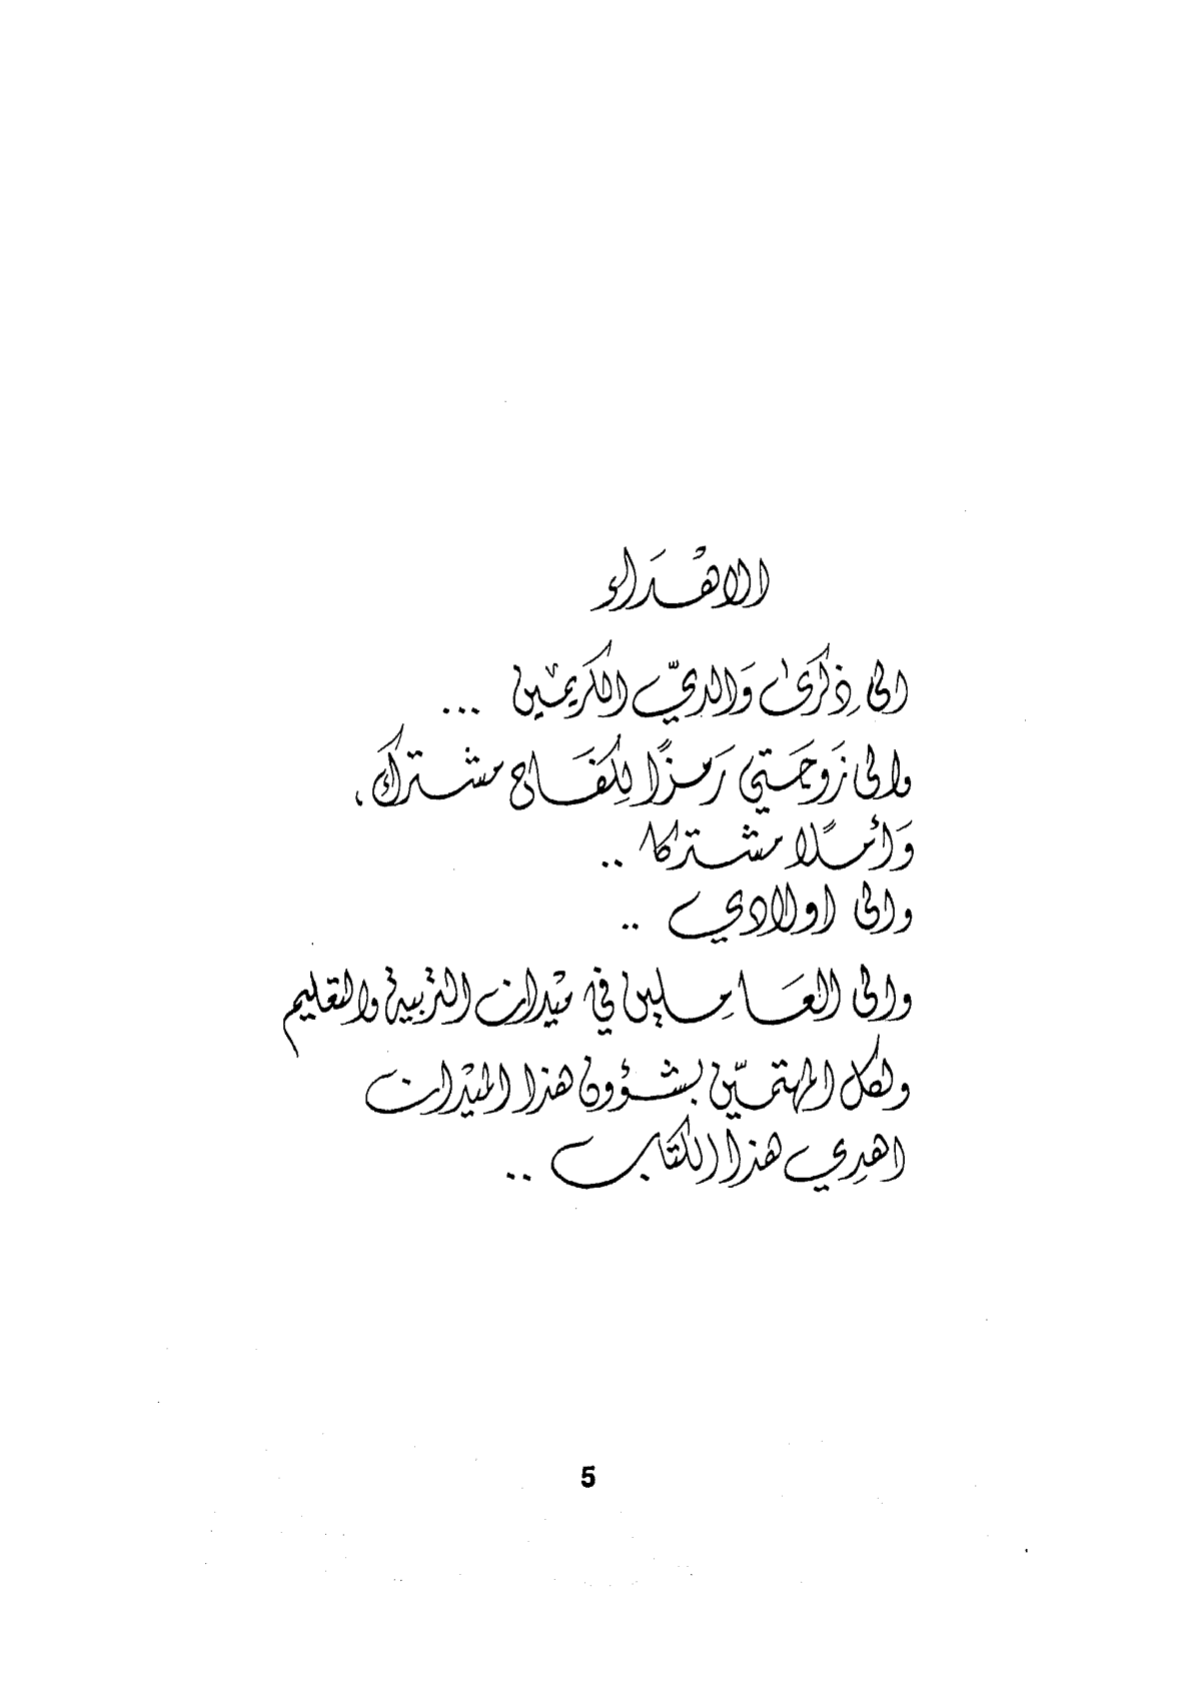 الاهْدَاء
الى ذِكرَى وَالديّ الكريمْين ...
والى زَوجَتي رَمزًا لِكفَاح مشترك،
وَأملًا مشتركا ..
والى اولادي ..
والى العَامِلين في ميْدان التربية والتعليم
ولكل المهتمّين بشؤون هذا الميْدان
اهدِي هذا الكتاب ..
5